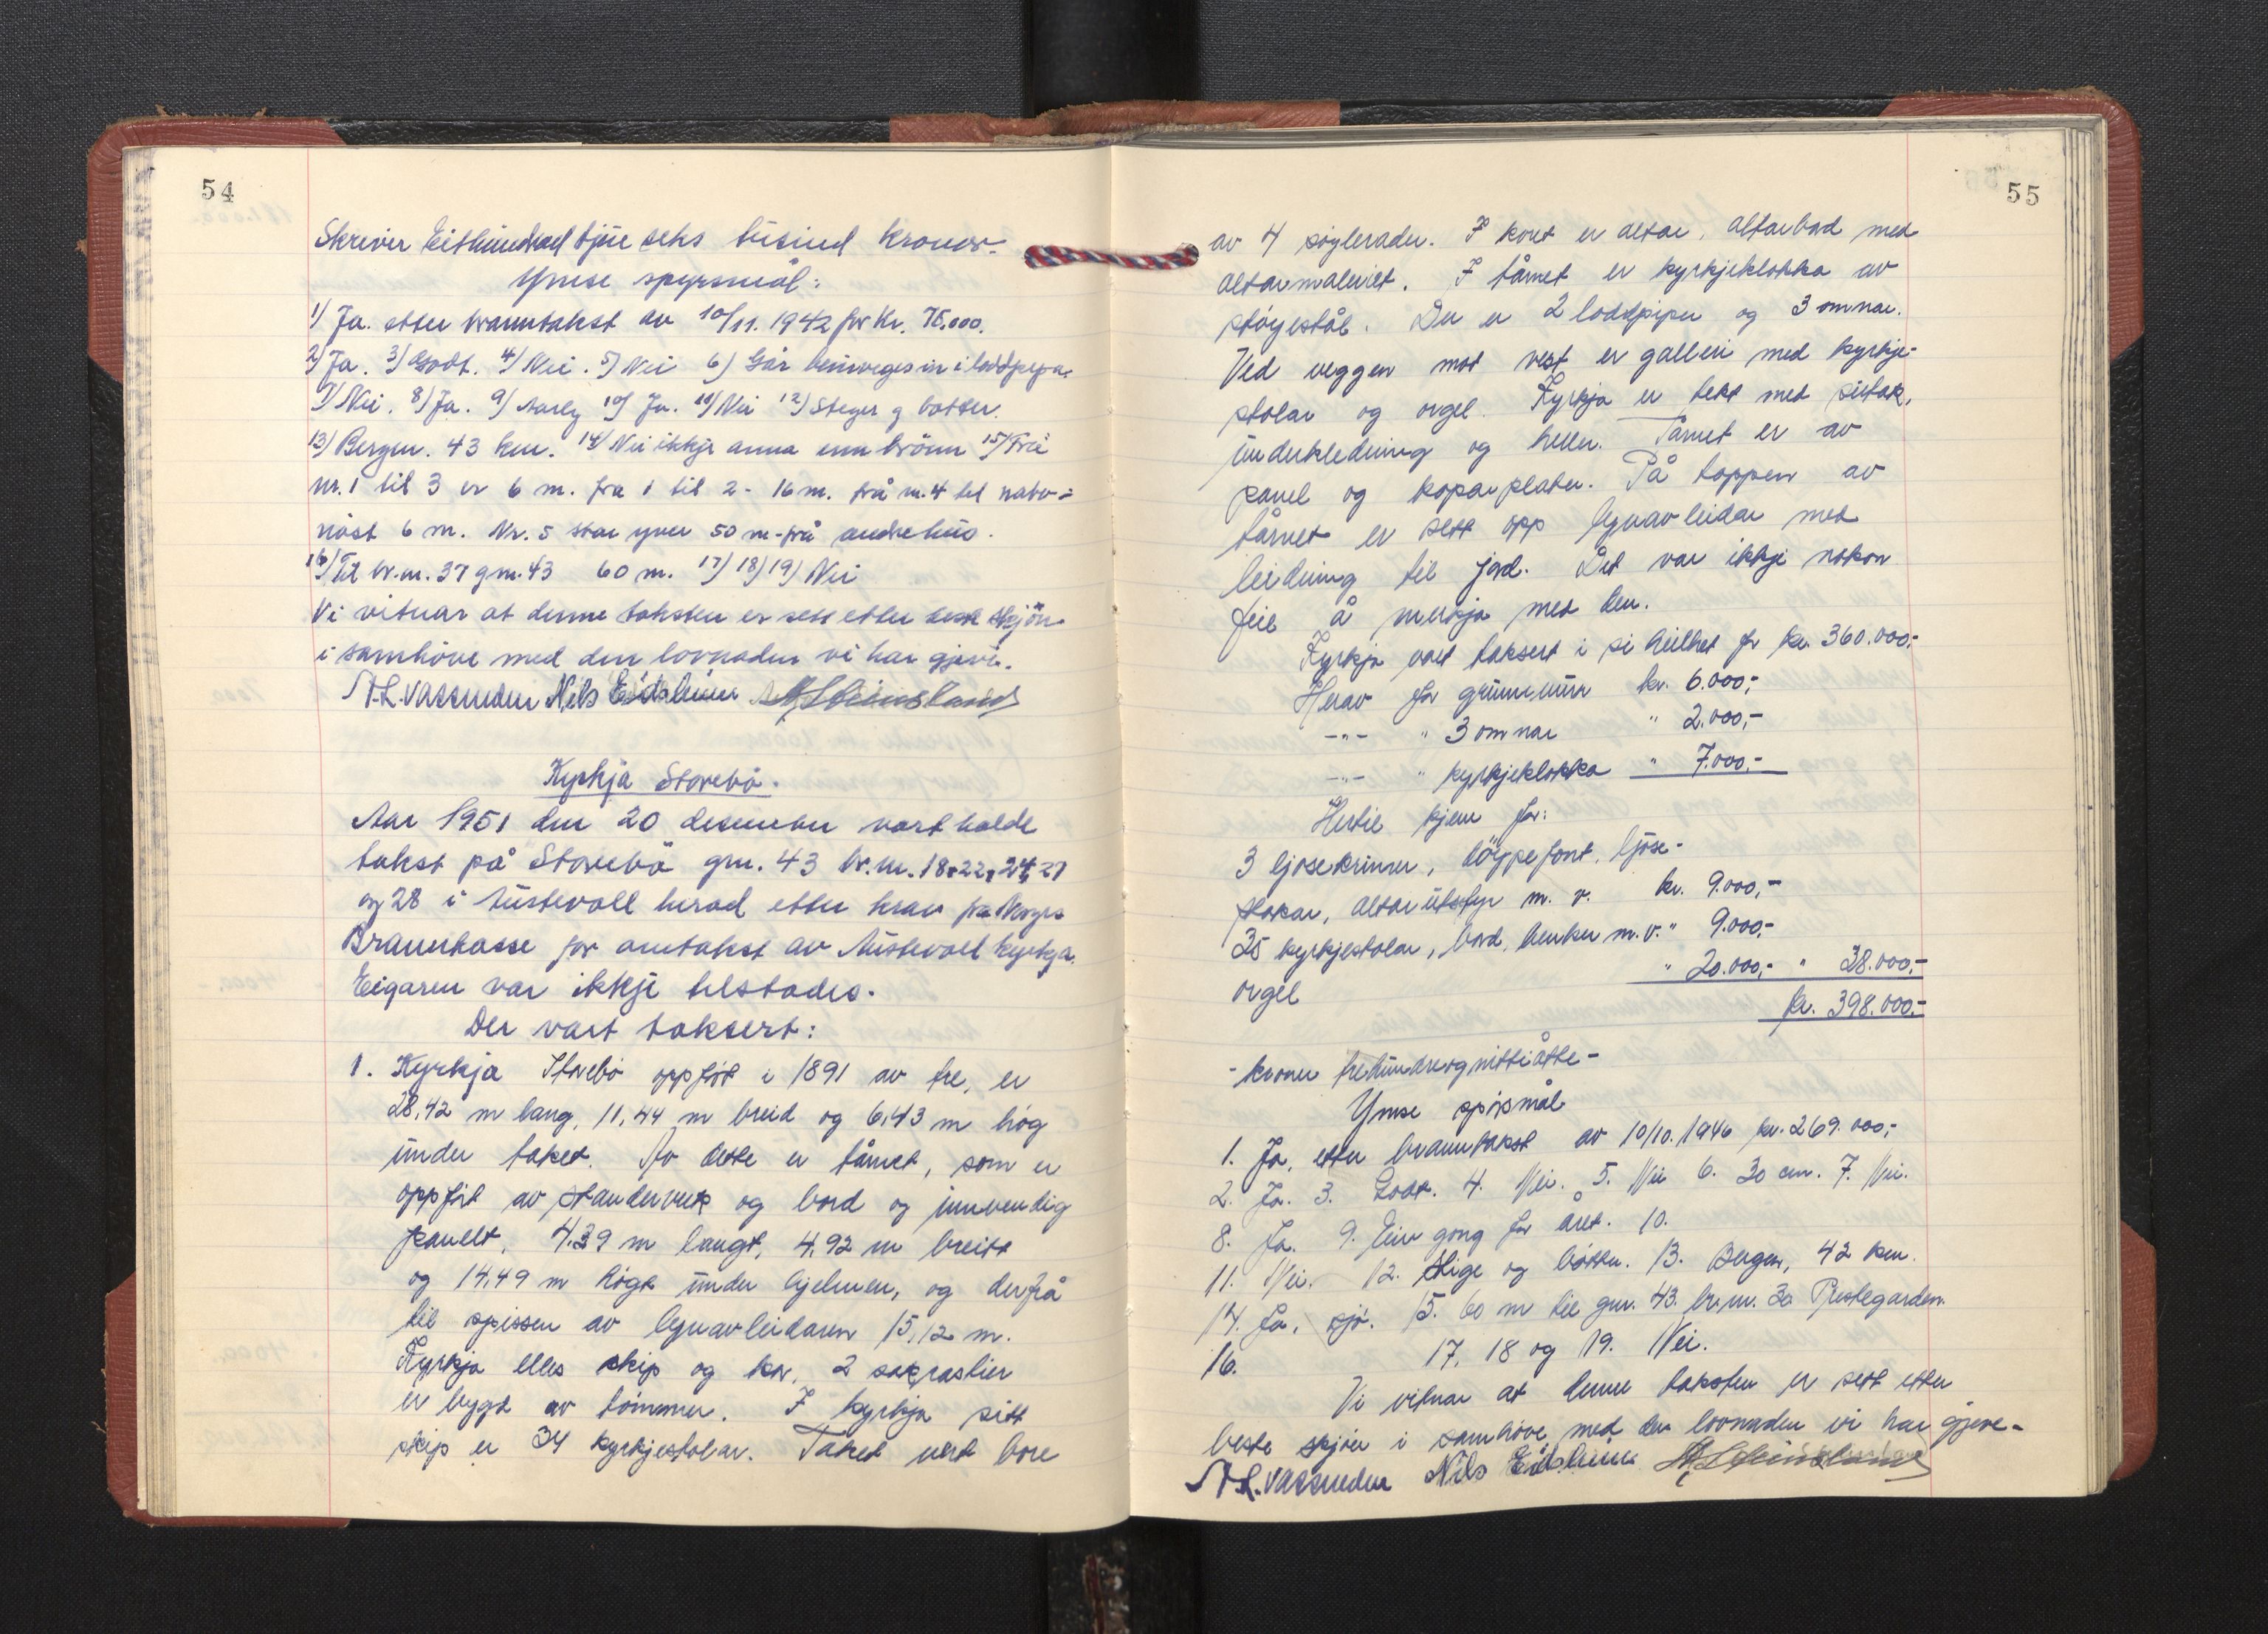 54
Skriver Eithundrad tjue seks tusind kroner-
Ymse spyrsmål:
1) Ja. etter branntakst av 10/11. 1942 for Kr. 75.000.
2) Ja. 3) Godt. 4) Nei. 5) Nei 6) Går beinveges in i loddpipa.
7) Nei. 8) Ja. 9) Aarleg 10) Ja. 11) Nei 12) Steger og bøtter.
13) Bergen. 43 km. 14) Nei ikkje anna enn brönn 15) Frå
nr. 1 til 3 er 6 m. fra 1 til 2 - 16 m. frå nr. 4 til nabo-
nöst 6 m. Nr. 5 star yver 50 m - frå andre hus.
16) Til br.nr. 37 gnr. 43 60 m. 17) 18) 19) Nei
Vi vitnar at denne taksten er sett etter beste skjön
i samhöve med den lovnaden vi har gjeve.
A.L. Vassneden Nils Eidsheim
Kyrkja Storebö.
Aar 1951 den 20 desember vart halde
takst på Storebö gnr. 43 br.nr. 18, 22, 24, 27
og 28 i Austevoll herad etter krav fra Noregs
Brannkasse for omtakst av Austevoll kyrkja.
Eigaren var ikkje tilstades.
Der vart taksert:
1. Kyrkja Storebö oppført i 1891 av tre, er
28,42 m lang, 11,44 m breid og 6,43 m høg
under taket. Av dette er tårnet, som er
oppført av standerverk og bord og innvendig
panelt, 4.39 m langt, 4,92 m breitt
og 14,49 m høgt under hjelmen, og derfrå
til spissen av lynavleidaren 15,12 m.
Kyrkja elles skip og kor, 2 sakrastier
er bygd av tømmer. I kyrkja sitt
skip er 34 kyrkjestolar. Taket vert bore
55
av 4 søylerader. I koret er altar, altarbord med
altarmaleriet. I tårnet er kyrkjeklokka av
støypestål. Der er 2 loddpiper og 3 omnar.
Ved veggen mot vest er galleri med kyrkje-
stolar og orgel. Kyrkja er tekt med sutak,
underkledning og heller. Tårnet er av
panel og koparplater. På toppen av
tårnet er sett opp lynavleidar med
leidning til jord. Det var ikkje nokon
feil å merkja med den.
Kyrkja vart taksert i si heilhet for kr. 360.000,-
Herav for grunnmur kr. 6.000,-
-"- " 3 omnar " 2.000,-
-"- " kyrkjeklokka " 7.000,-
Hertil kjem for:
3 ljosekriner, döypefont, ljose-
stakar, altarutstyr m. v. kr. 9.000,-
35 kyrkjestolar, bord, benker m.v. " 9.000,-
orgel " 20.000,- " 38.000,-
kr. 398.000,-
- kroner trehundreognittiåtte -
Ymse spörsmål
1. Ja, etter branntakst av 10/10. 1946 kr. 269.000,-
2. Ja. 3. Godt. 4. Nei. 5. Nei 6. 30 cm. 7. Nei.
8. Ja. 9. Ein gong for året. 10.
11. Nei. 12. Stige og bøtter. 13. Bergen, 42 km.
14. Ja, sjø. 15. 60 m til gnr. 43. br.nr. 30 Prestegarden.
16. 17, 18 og 19. Nei.
Vi vitnar at denne taksten er sett etter
beste skjøn i samhøve med den lovnaden vi har gjeve-
A.L. Vassneden Nils Eidsheim